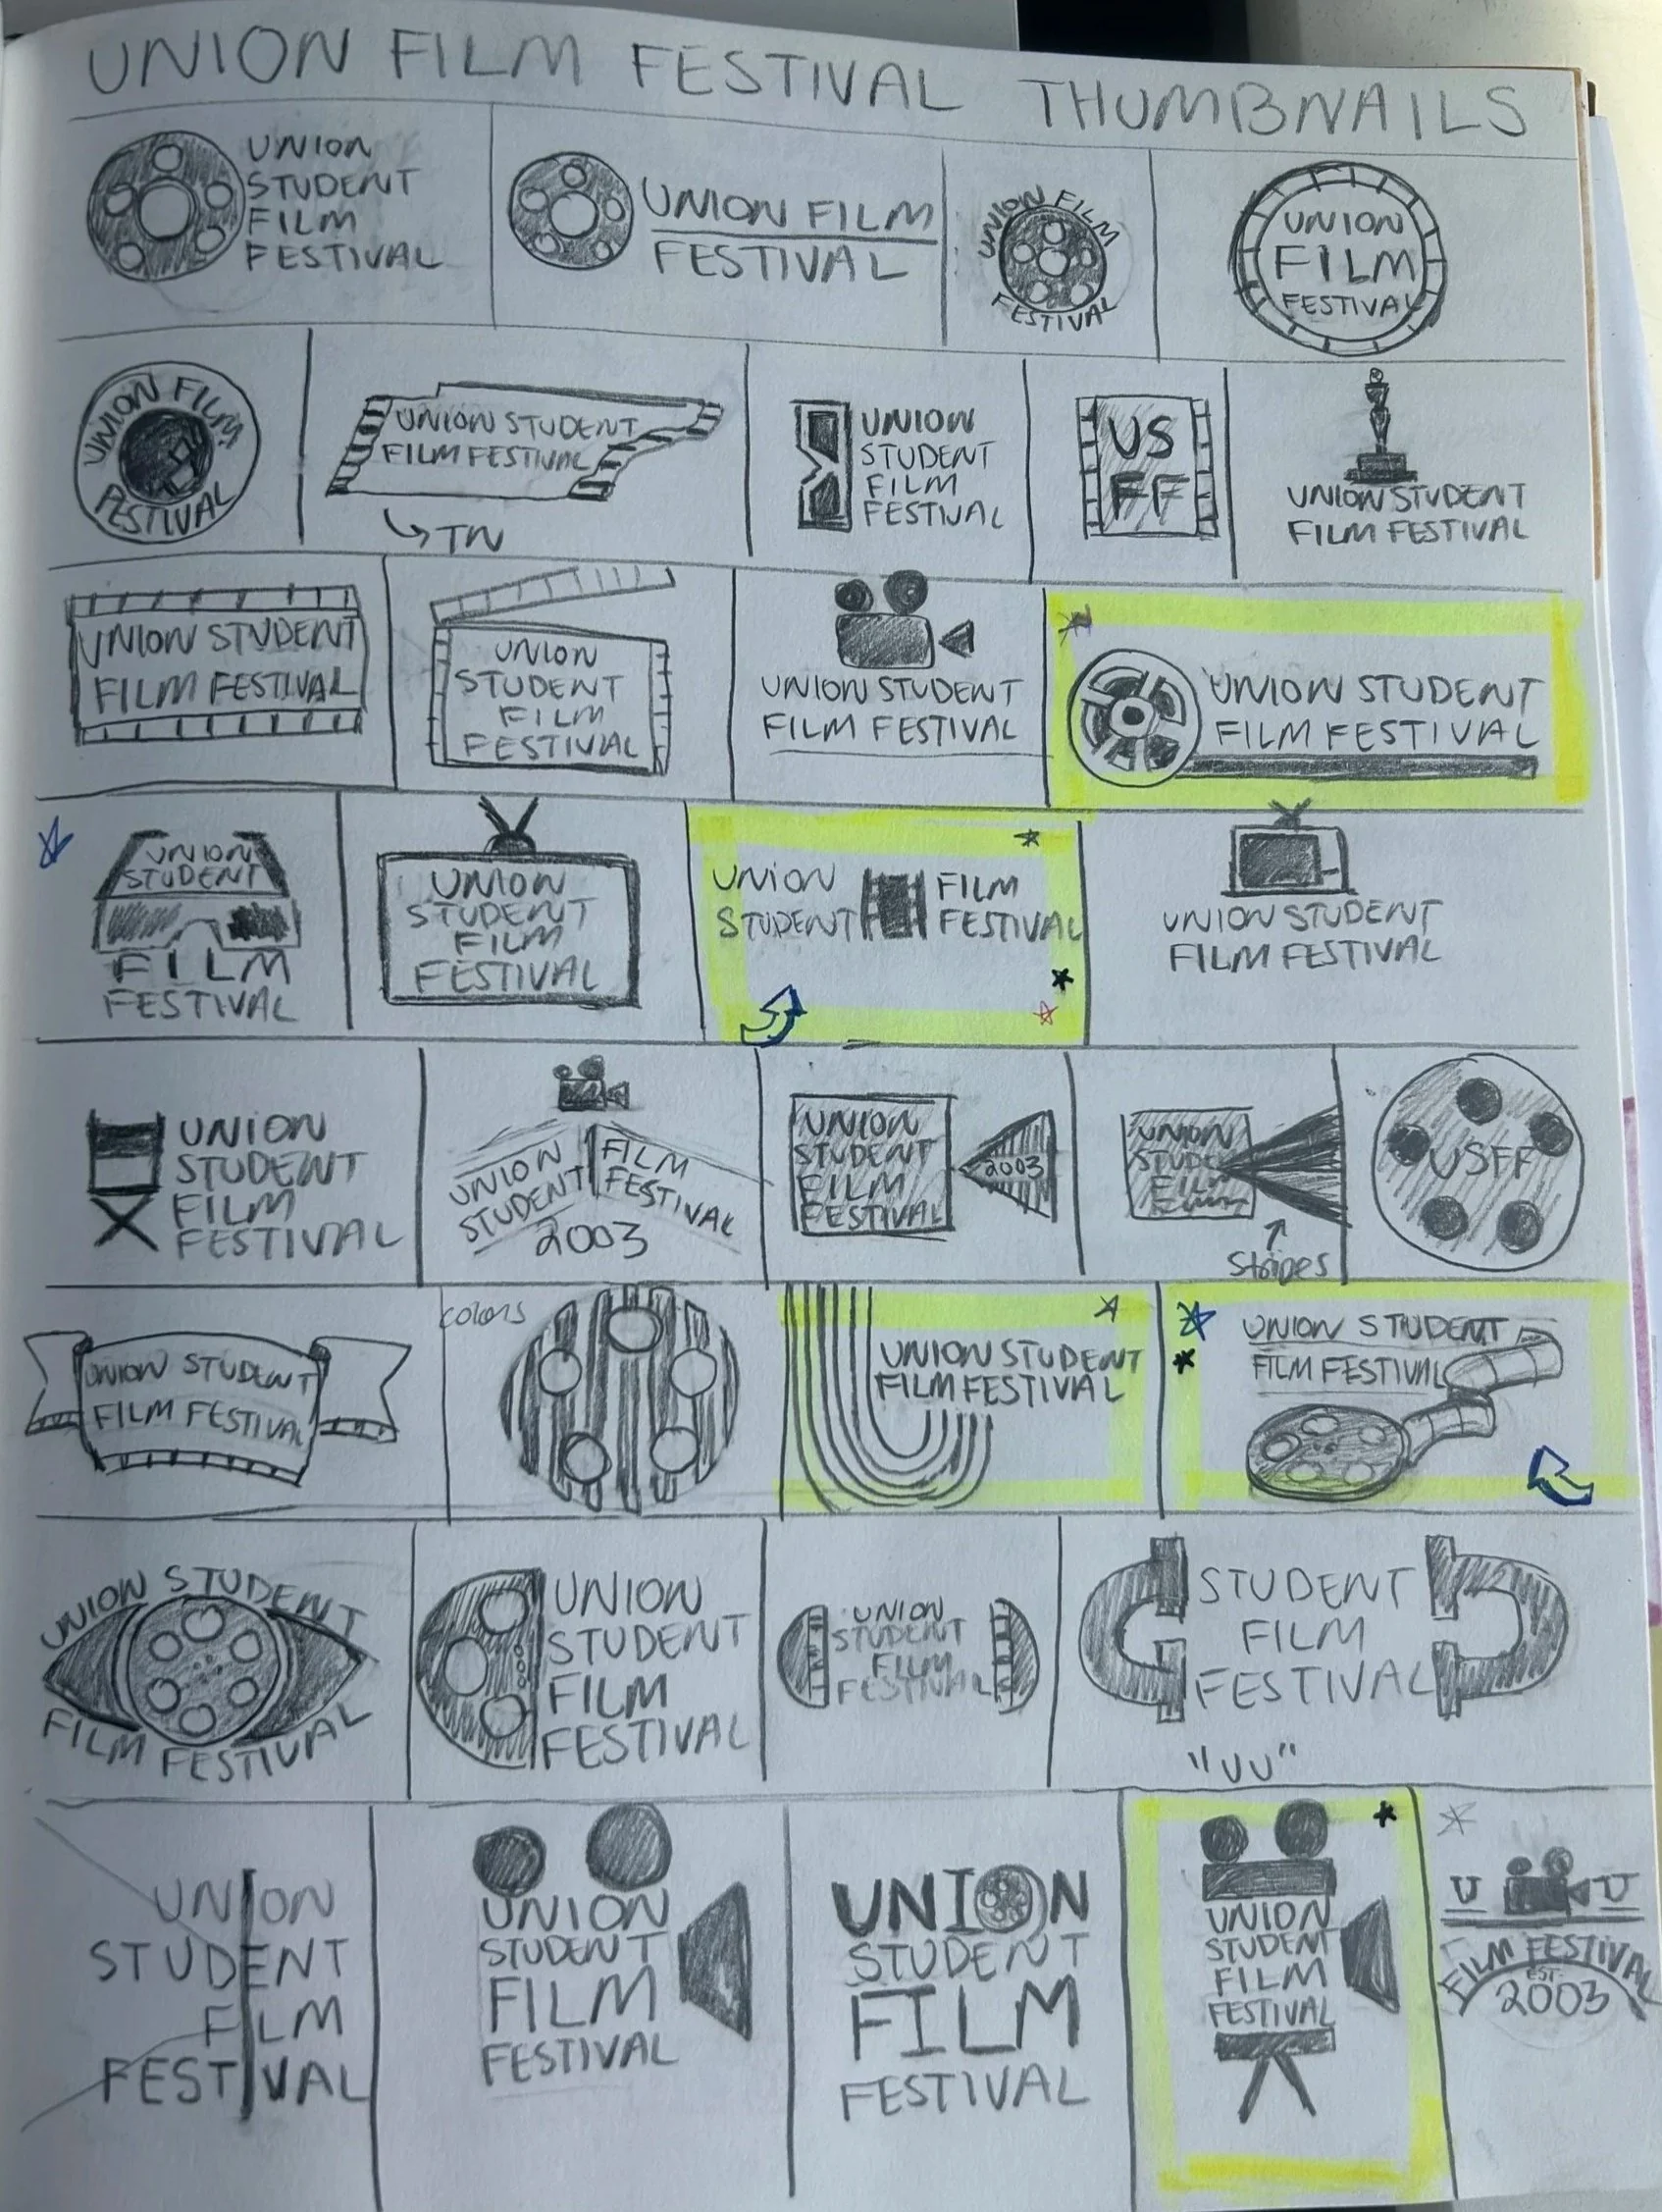 UNION FILM FESTIVAL THUMBNAILS
UNION
STUDENT
FILM
FESTIVAL
UNION FILM
FESTIVAL
UNION FILM
FESTIVAL
UNION
FILM
FESTIVAL
UNION FILM
FESTIVAL
UNION STUDENT
FILM FESTIVAL
TN
UNION
STUDENT
FILM
FESTIVAL
US
FF
UNION STUDENT
FILM FESTIVAL
UNION STUDENT
FILM FESTIVAL
UNION
STUDENT
FILM
FESTIVAL
UNION STUDENT
FILM FESTIVAL
UNION STUDENT
FILM FESTIVAL
UNION
STUDENT
FILM
FESTIVAL
UNION
STUDENT
FILM
FESTIVAL
UNION
STUDENT
FILM
FESTIVAL
UNION STUDENT
FILM FESTIVAL
UNION
STUDENT
FILM
FESTIVAL
UNION
STUDENT
FILM
FESTIVAL
2003
UNION
STUDENT
FILM
FESTIVAL
2003
UNION
FILM
Stripes
USFF
UNION STUDENT
FILM FESTIVAL
colors
UNION STUDENT
FILM FESTIVAL
UNION STUDENT
FILM FESTIVAL
UNION STUDENT
FILM FESTIVAL
UNION
STUDENT
FILM
FESTIVAL
UNION
STUDENT
FILM
FESTIVAL
STUDENT
FILM
FESTIVAL
"UU"
UNION
STUDENT
FILM
FESTIVAL
UNION
STUDENT
FILM
FESTIVAL
UNION
STUDENT
FILM
FESTIVAL
UNION
STUDENT
FILM
FESTIVAL
U U
FILM FESTIVAL
EST.
2003